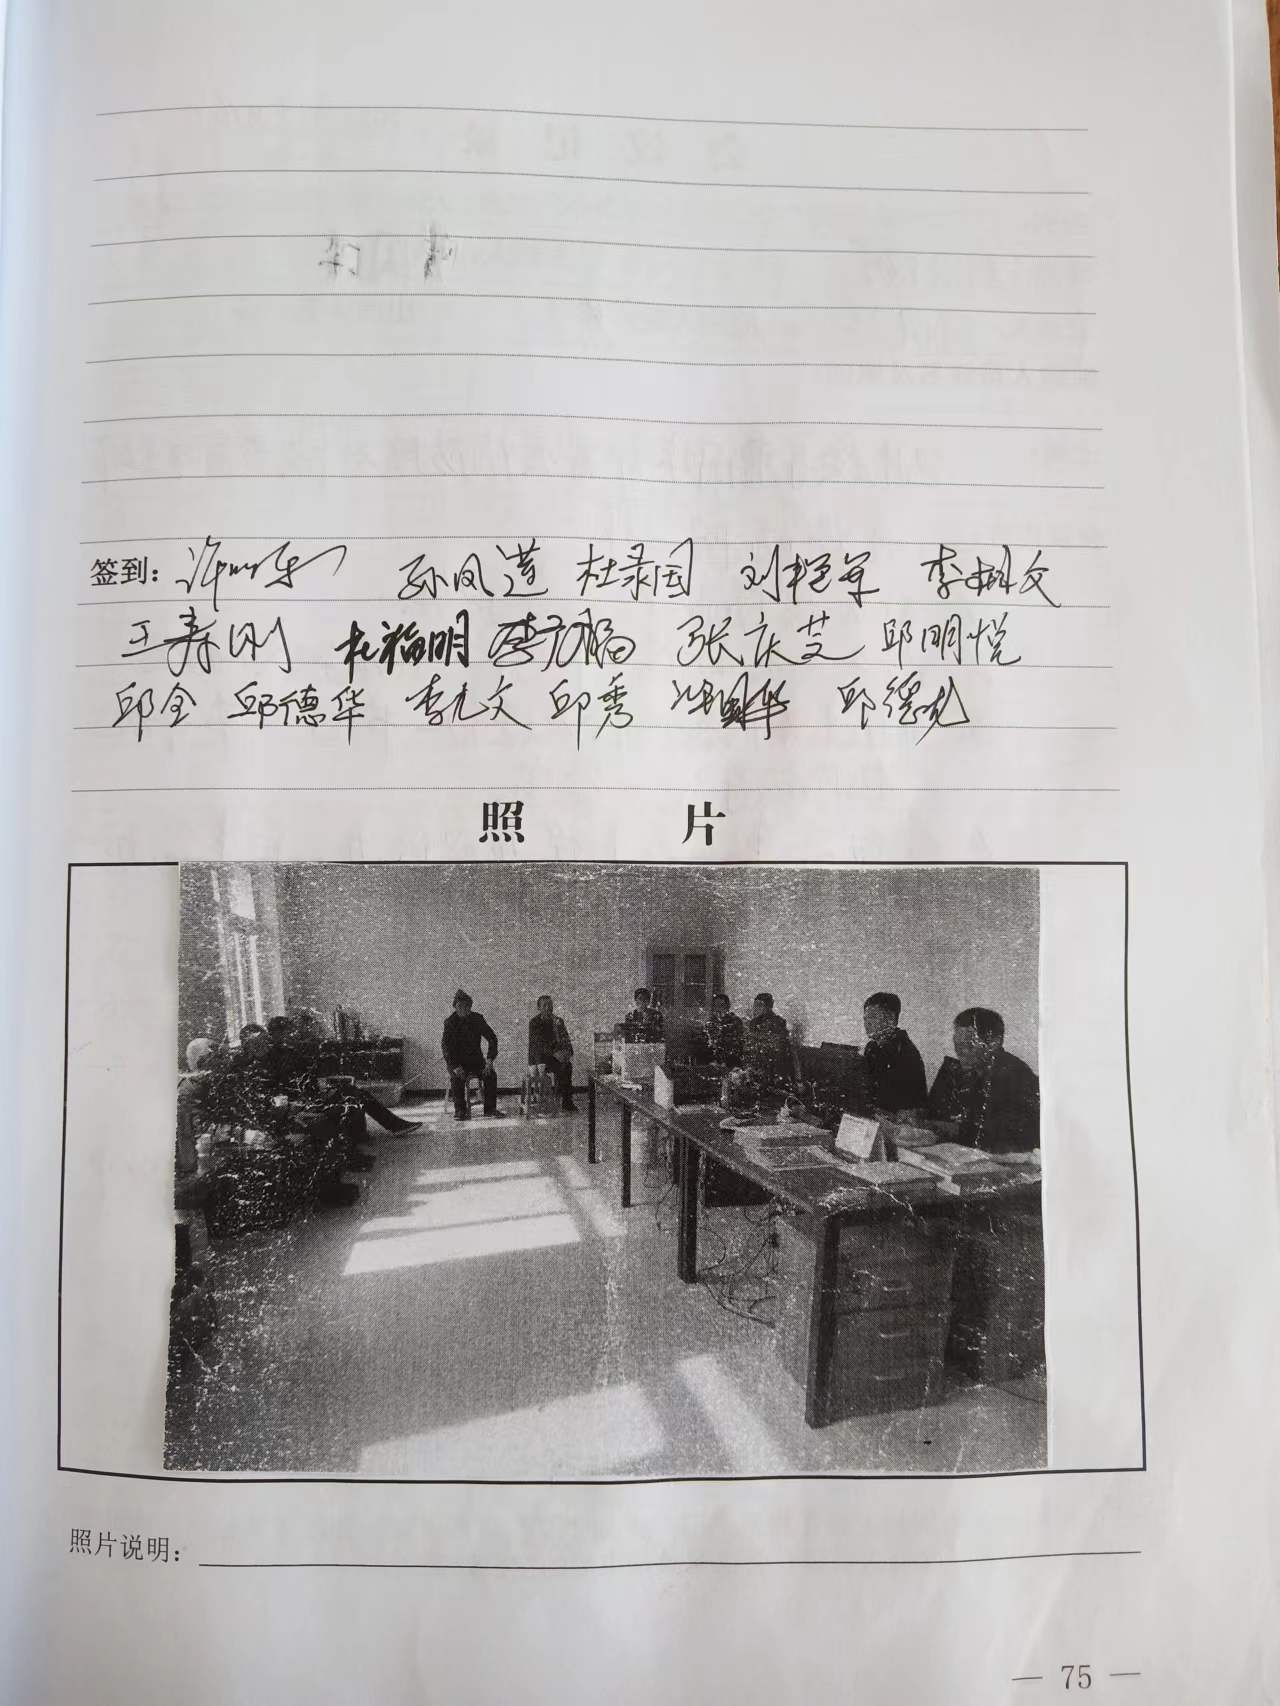 签到： 孙凤莲 杜录国 刘艳军 李树文
王寿刚 杜福明 李福 张庆芝 邱明悦
邱全 邱德华 李九文 邱秀 华 邱德龙
照 片
照片说明：
— 75 —